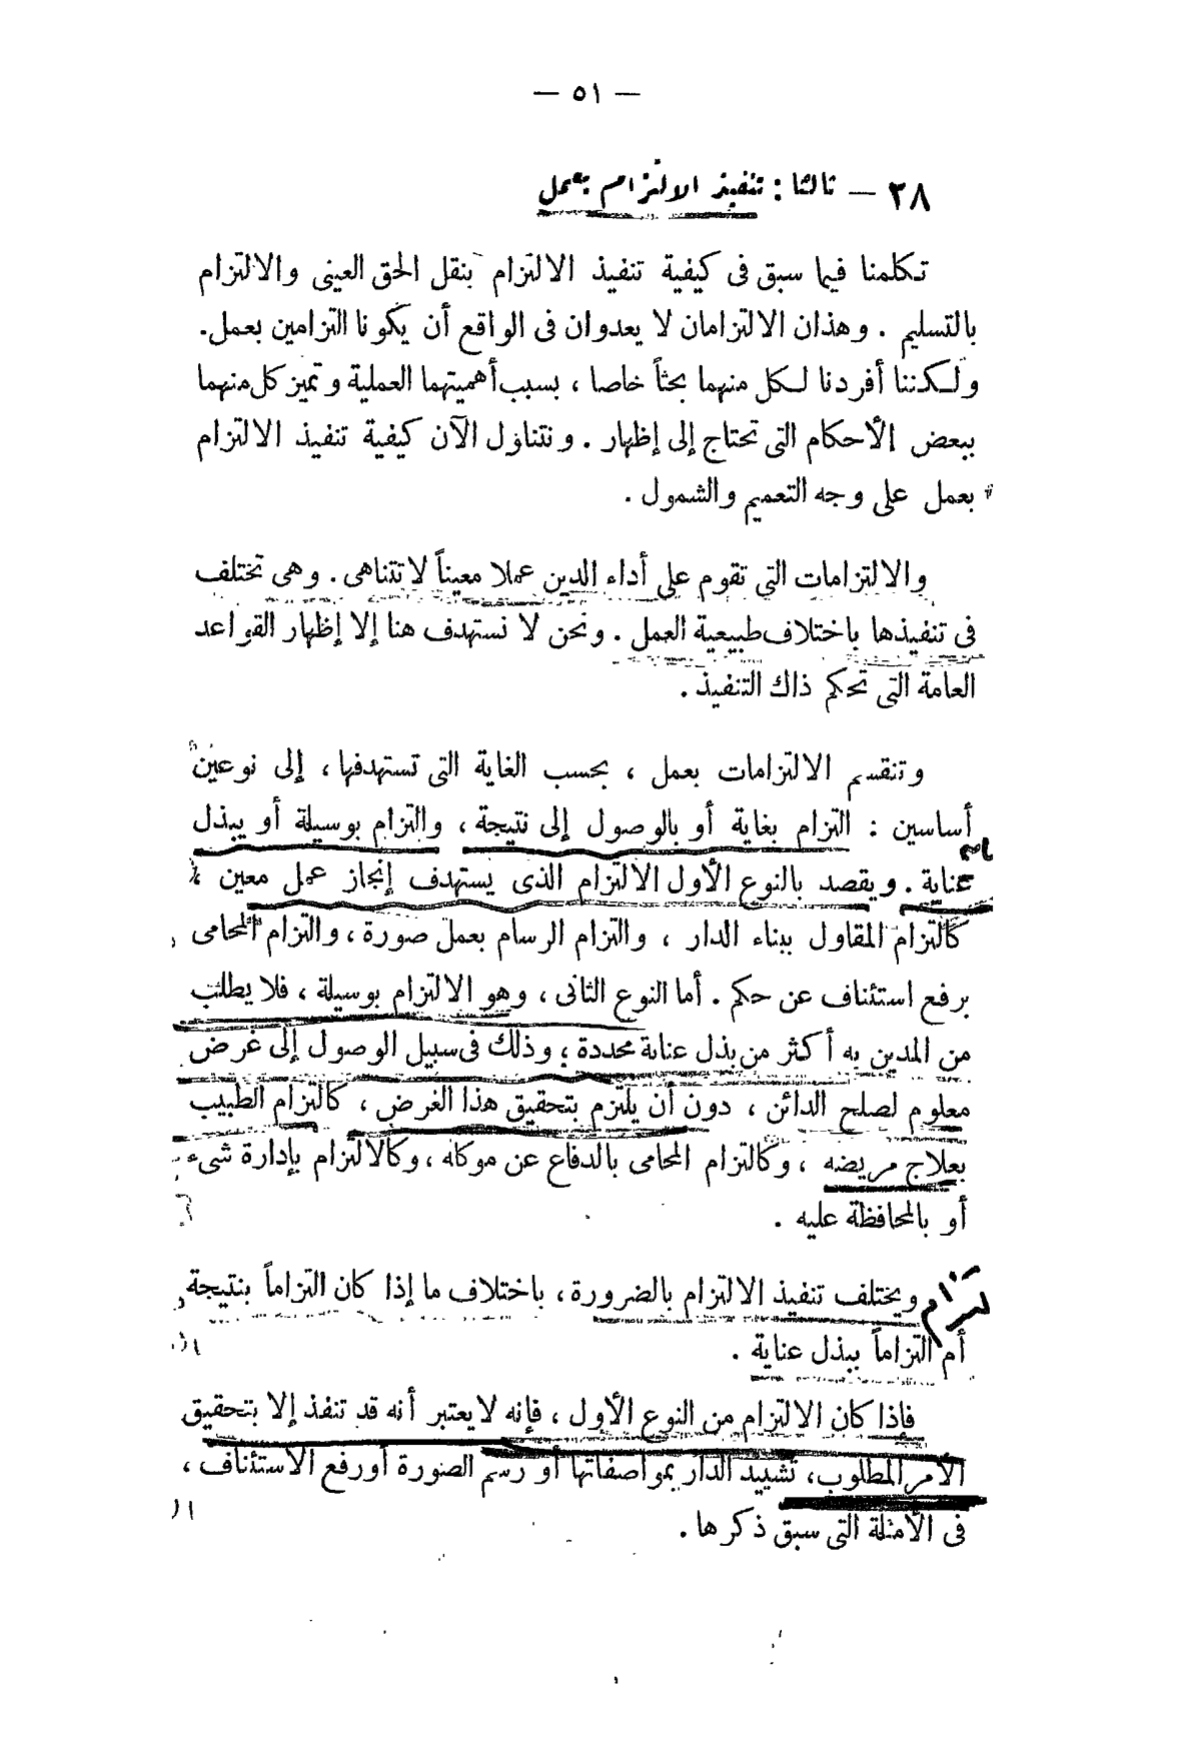 — ٥١ —
٣٨ — ثالثا : تنفيذ الالتزام بعمل
تكلمنا فيما سبق فى كيفية تنفيذ الالتزام بنقل الحق العينى والالتزام
بالتسليم . وهذان الالتزامان لا يعدوان فى الواقع أن يكونا التزامين بعمل.
ولكننا أفردنا لكل منهما بحثاً خاصا ، بسبب أهميتهما العملية وتميز كل منهما
ببعض الأحكام التى تحتاج إلى إظهار . ونتناول الآن كيفية تنفيذ الالتزام
بعمل على وجه التعميم والشمول .
والالتزامات التى تقوم على أداء الدين عملا معيناً لا تتناهى . وهى تختلف
فى تنفيذها باختلاف طبيعية العمل . ونحن لا نستهدف هنا إلا إظهار القواعد
العامة التى تحكم ذاك التنفيذ .
وتنقسم الالتزامات بعمل ، بحسب الغاية التى تستهدفها ، إلى نوعين
أساسين : التزام بغاية أو بالوصول إلى نتيجة ، والتزام بوسيلة أو يبذل
عناية . ويقصد بالنوع الأول الالتزام الذى يستهدف إنجاز عمل معين ،
كالتزام المقاول ببناء الدار ، والتزام الرسام بعمل صورة ، والتزام المحامى
برفع استئناف عن حكم . أما النوع الثانى ، وهو الالتزام بوسيلة ، فلا يطلب
من المدين به أكثر من بذل عناية محددة ؛ وذلك فى سبيل الوصول إلى غرض
معلوم لصلح الدائن ، دون أن يلتزم بتحقيق هذا الغرض ، كالتزام الطبيب
بعلاج مريضه ، وكالتزام المحامى بالدفاع عن موكله ، وكالالتزام بإدارة شىء
أو بالمحافظة عليه .
ويختلف تنفيذ الالتزام بالضرورة ، باختلاف ما إذا كان التزاماً بنتيجة
أم التزاماً ببذل عناية .
فإذا كان الالتزام من النوع الأول ، فإنه لا يعتبر أنه قد تنفذ إلا بتحقيق
الأمر المطلوب ، تشييد الدار بمواصفاتها أو رسم الصورة أو رفع الاستئناف ،
فى الأمثلة التى سبق ذكرها .